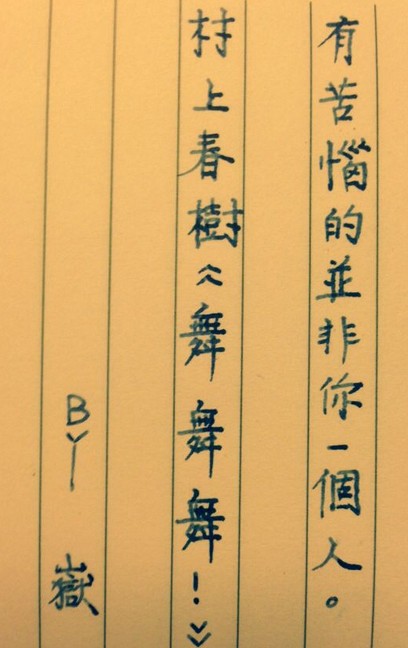 有苦惱的並非你一個人。
村上春樹《舞舞舞！》
BY 嶽